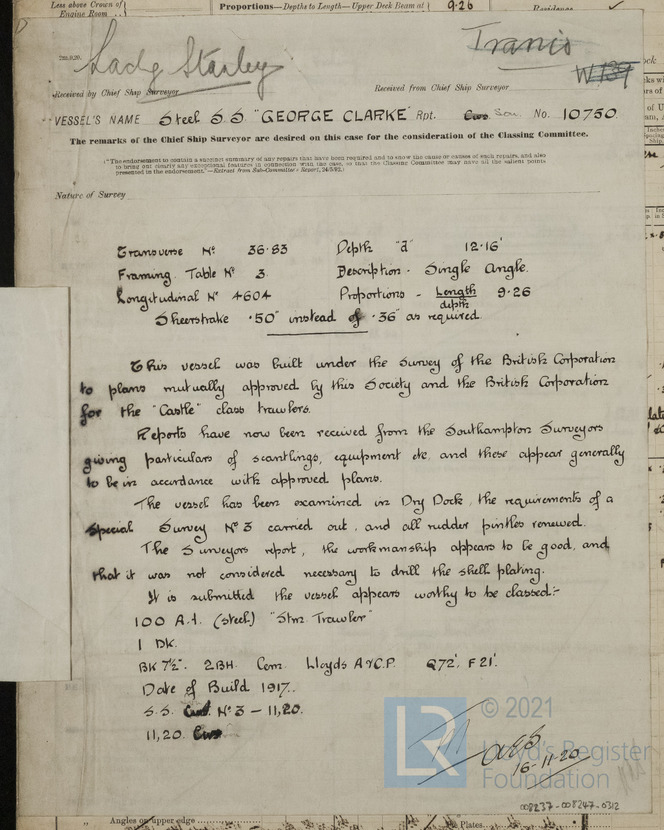 Less above Crown of Engine Room
Proportions—Depths to Length—Upper Deck Beam at 9.26
Lady Stanley
Iranis
W139
Received by Chief Ship Surveyor
Received from Chief Ship Surveyor
VESSEL'S NAME Steel S.S "GEORGE CLARKE" Rpt. Cws Son. No. 10750.
The remarks of the Chief Ship Surveyor are desired on this case for the consideration of the Classing Committee.
("The endorsement to contain a succinct summary of any repairs that have been required and to show the cause or causes of such repairs, and also
to bring out clearly any exceptional features in connection with the case, so that the Classing Committee may have all the salient points
presented in the endorsement."—Extract from Sub-Committee's Report, 24/5/92.)
Nature of Survey
Transverse No 36.83 Depth "d" 12.16'
Framing Table No 3. Description - Single Angle.
Longitudinal No 4604 Proportions - Length/depth 9.26
Sheerstrake .50" instead of .36" as required
This vessel was built under the Survey of the British Corporation
to plans mutually approved by this Society and the British Corporation
for the "Castle" class trawlers.
Reports have now been received from the Southampton Surveyors
giving particulars of scantlings, equipment etc. and these appear generally
to be in accordance with approved plans.
The vessel has been examined in Dry Dock, the requirements of a
Special Survey No 3 carried out, and all rudder pintles renewed.
The Surveyors report, the workmanship appears to be good, and
that it was not considered necessary to drill the shell plating.
It is submitted the vessel appears worthy to be classed:-
100 A.1. (steel) "Stm. Trawler"
1 DK.
BK 7½". 2BH. Cem. Lloyds A&C.P. Q72', F21'.
Date of Build 1917.
S.S. No 3 - 11,20.
11,20. Cws
16-11-20
© 2021
LR
Lloyd's Register
Foundation
008237-008247-0312
Angles on upper edge
Plates